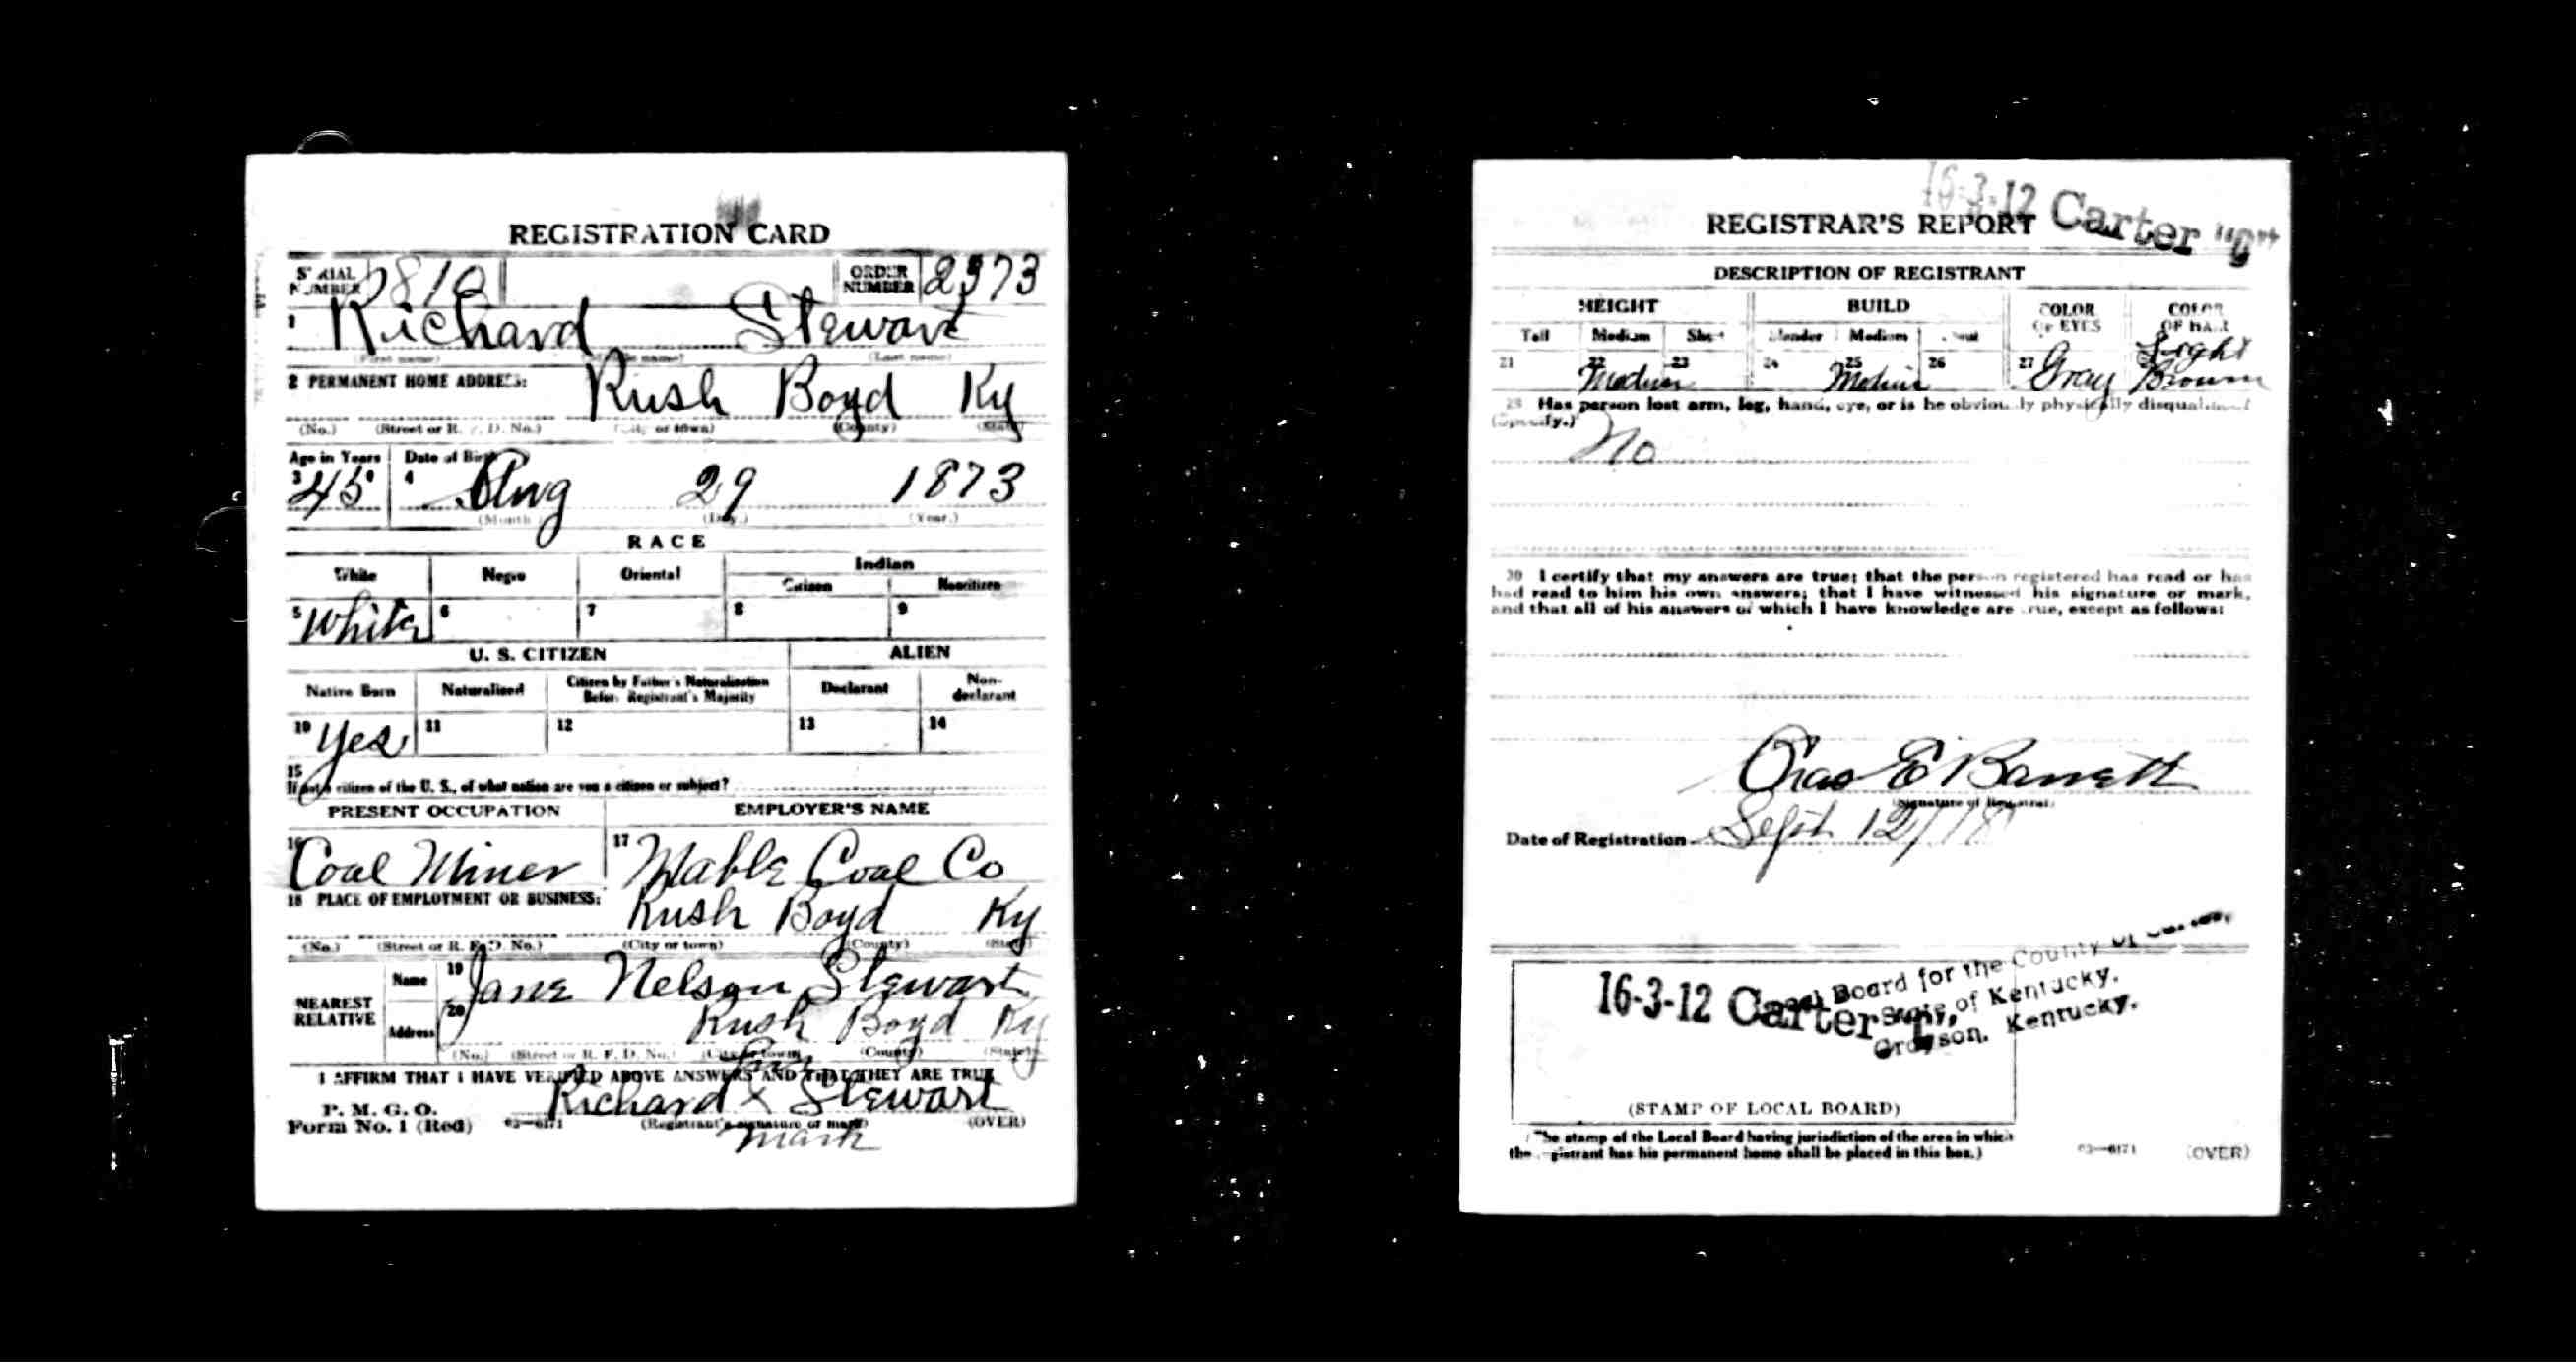 REGISTRATION CARD
SERIAL NUMBER 2810 ORDER NUMBER 2373
1 Richard Stewart
(First name) (Middle name) (Last name)
2 PERMANENT HOME ADDRESS: Rush Boyd Ky
(No.) (Street or R. F. D. No.) (City or town) (County) (State)
Age in Years Date of Birth
3 45 4 Aug 29 1873
(Month) (Day.) (Year.)
RACE
White Negro Oriental Indian
Citizen Noncitizen
5 White 6 7 8 9
U. S. CITIZEN ALIEN
Native Born Naturalized Citizen by Father's Naturalization Before Registrant's Majority Declarant Non-declarant
10 Yes 11 12 13 14
15
If not a citizen of the U. S., of what nation are you a citizen or subject?
PRESENT OCCUPATION EMPLOYER'S NAME
16 Coal Miner 17 Mable Coal Co
18 PLACE OF EMPLOYMENT OR BUSINESS: Rush Boyd Ky
(No.) (Street or R. F. D. No.) (City or town) (County) (State)
NEAREST RELATIVE Name 19 Jane Nelson Stewart
Address 20 Rush Boyd Ky
(No.) (Street or R. F. D. No.) (City or town) (County) (State)
I AFFIRM THAT I HAVE VERIFIED ABOVE ANSWERS AND THAT THEY ARE TRUE
P. M. G. O.
Form No. 1 (Red) 03—6171 Richard X Stewart
(Registrant's signature or mark) (OVER)
mark
16-3-12 Carter "C"
REGISTRAR'S REPORT
DESCRIPTION OF REGISTRANT
HEIGHT BUILD COLOR OF EYES COLOR OF HAIR
Tall Medium Short Slender Medium Stout
21 22 Medium 23 24 25 Medium 26 27 Gray Light Brown
29 Has person lost arm, leg, hand, eye, or is he obviously physically disqualified?
(Specify.) No
30 I certify that my answers are true; that the person registered has read or has
had read to him his own answers; that I have witnessed his signature or mark,
and that all of his answers of which I have knowledge are true, except as follows:
Chas E Barrett
(Signature of Registrar)
Date of Registration Sept 12/18
Local Board for the County of Carter,
State of Kentucky,
Grayson, Kentucky.
16-3-12 Carter
(STAMP OF LOCAL BOARD)
(The stamp of the Local Board having jurisdiction of the area in which
the registrant has his permanent home shall be placed in this box.)
03—6171 (OVER)